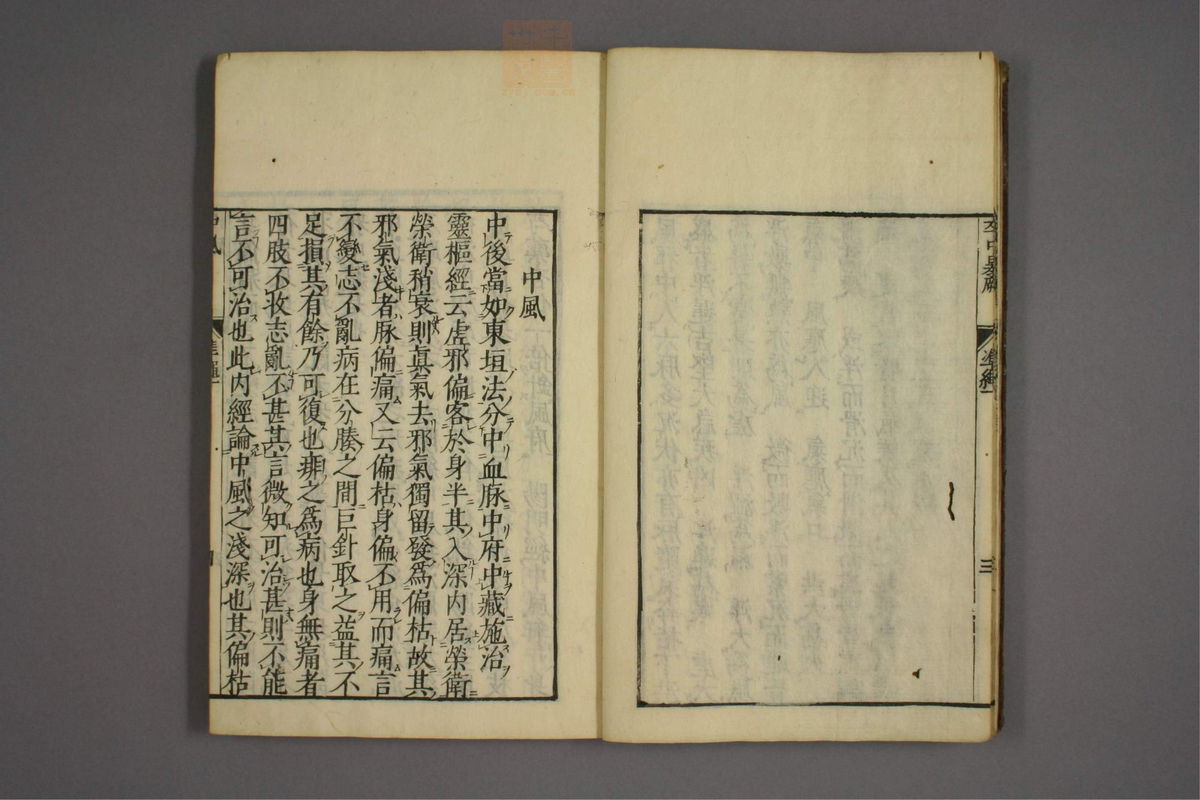 卒中暴厥
準繩一
三
中風
中後當如東垣法分中血脉中府中藏施治
靈樞經云虛邪偏客於身半其入深内居榮衛
榮衛稍衰則眞氣去邪氣獨留發爲偏枯故其
邪氣淺者脉偏痛又云偏枯身偏不用而痛言
不變志不亂病在分腠之間巨針取之益其不
足損其有餘乃可復也痱之爲病也身無痛者
四肢不收志亂不甚其言微知可治甚則不能
言不可治也此内經論中風之淺深也其偏枯
中風